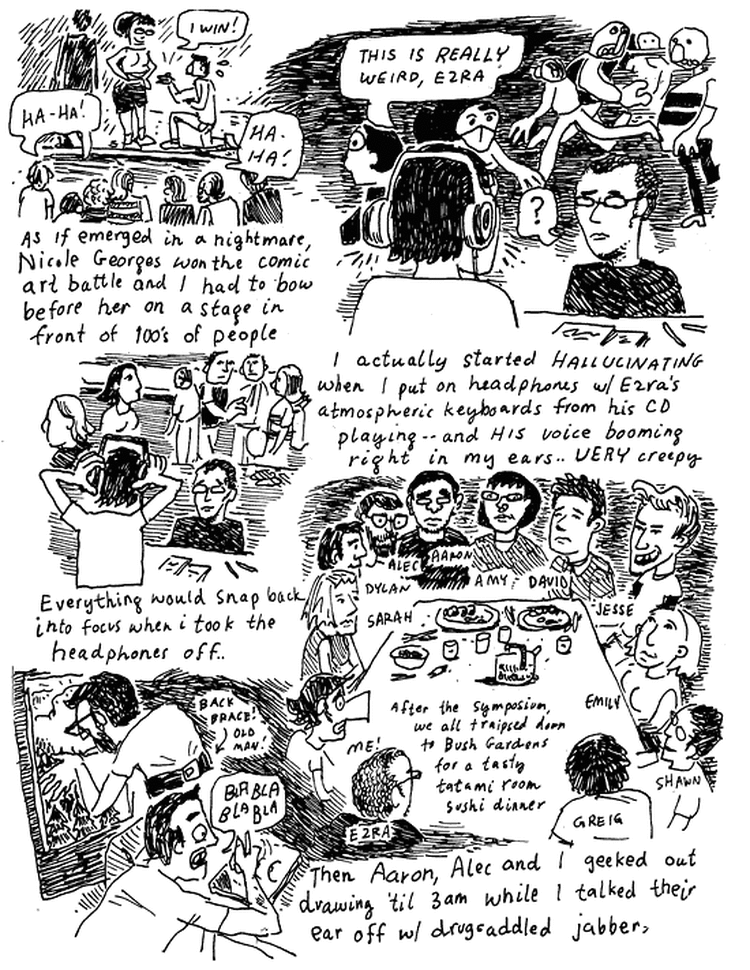 I WIN!
HA-HA!
HA-
HA!
As if emerged in a nightmare,
Nicole Georges won the comic
art battle and I had to bow
before her on a stage in
front of 100's of people
THIS IS REALLY
WEIRD, EZRA
?
I actually started HALLUCINATING
when I put on headphones w/ Ezra's
atmospheric keyboards from his CD
playing--and HIS voice booming
right in my ears.. VERY creepy
Everything would snap back
into focus when i took the
headphones off..
ALEC
AARON
DYLAN
AMY
DAVID
JESSE
SARAH
EMILY
SHAWN
GREIG
EZRA
ME!
After the Symposium,
we all traipsed down
to Bush Gardens
for a tasty
tatami room
sushi dinner
BACK
BRACE!
OLD
MAN!
BLA BLA
BLA BLA
Then Aaron, Alec and I geeked out
drawing 'til 3am while I talked their
ear off w/ drug-addled jabber,